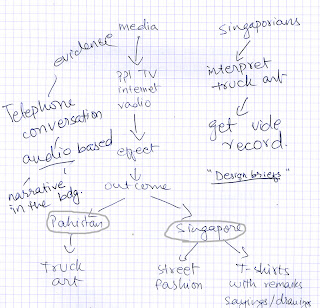 media
Singaporians
evidence
interpret
truck art
??! TV
internet
radio
Telephone
conversation
get vide
record.
audio based
effect
narrative
in the bdg.
outcome
"Design briefs"
Pakistan
Singapore
truck
art
street
fashion
T-shirts
with remarks
sayings/drawings